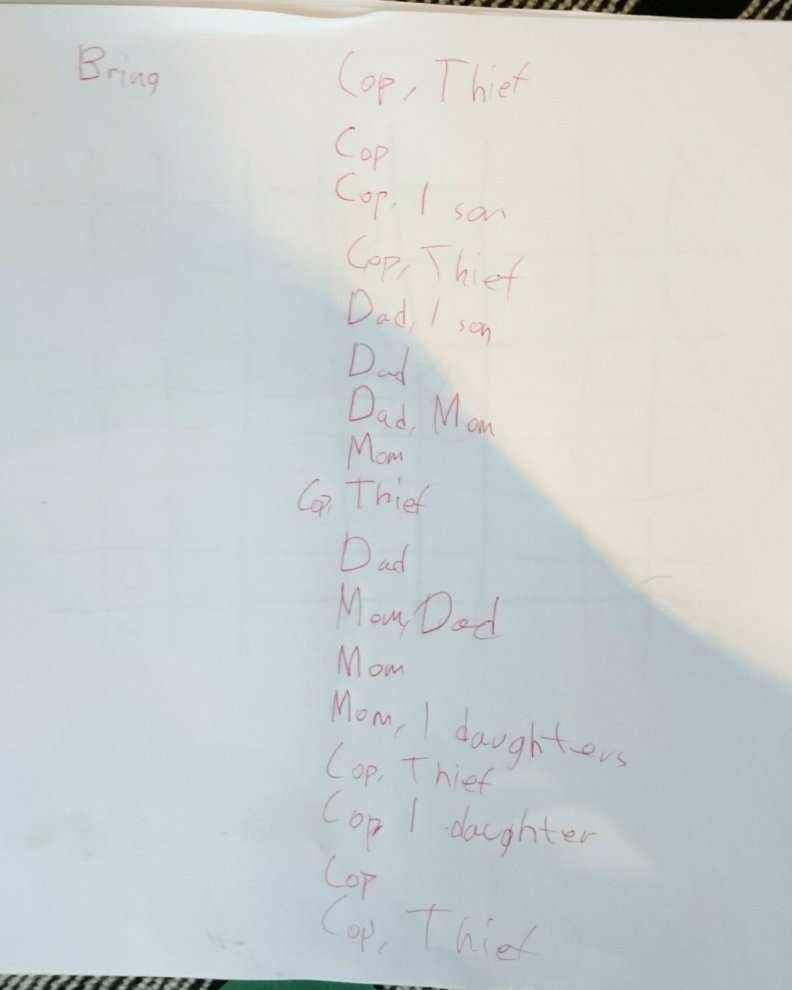 Bring
Cop, Thief
Cop
Cop, 1 son
Cop, Thief
Dad, 1 son
Dad
Dad, Mom
Mom
Cop, Thief
Dad
Mom, Dad
Mom
Mom, 1 daughters
Cop, Thief
Cop, 1 daughter
Cop
Cop, Thief